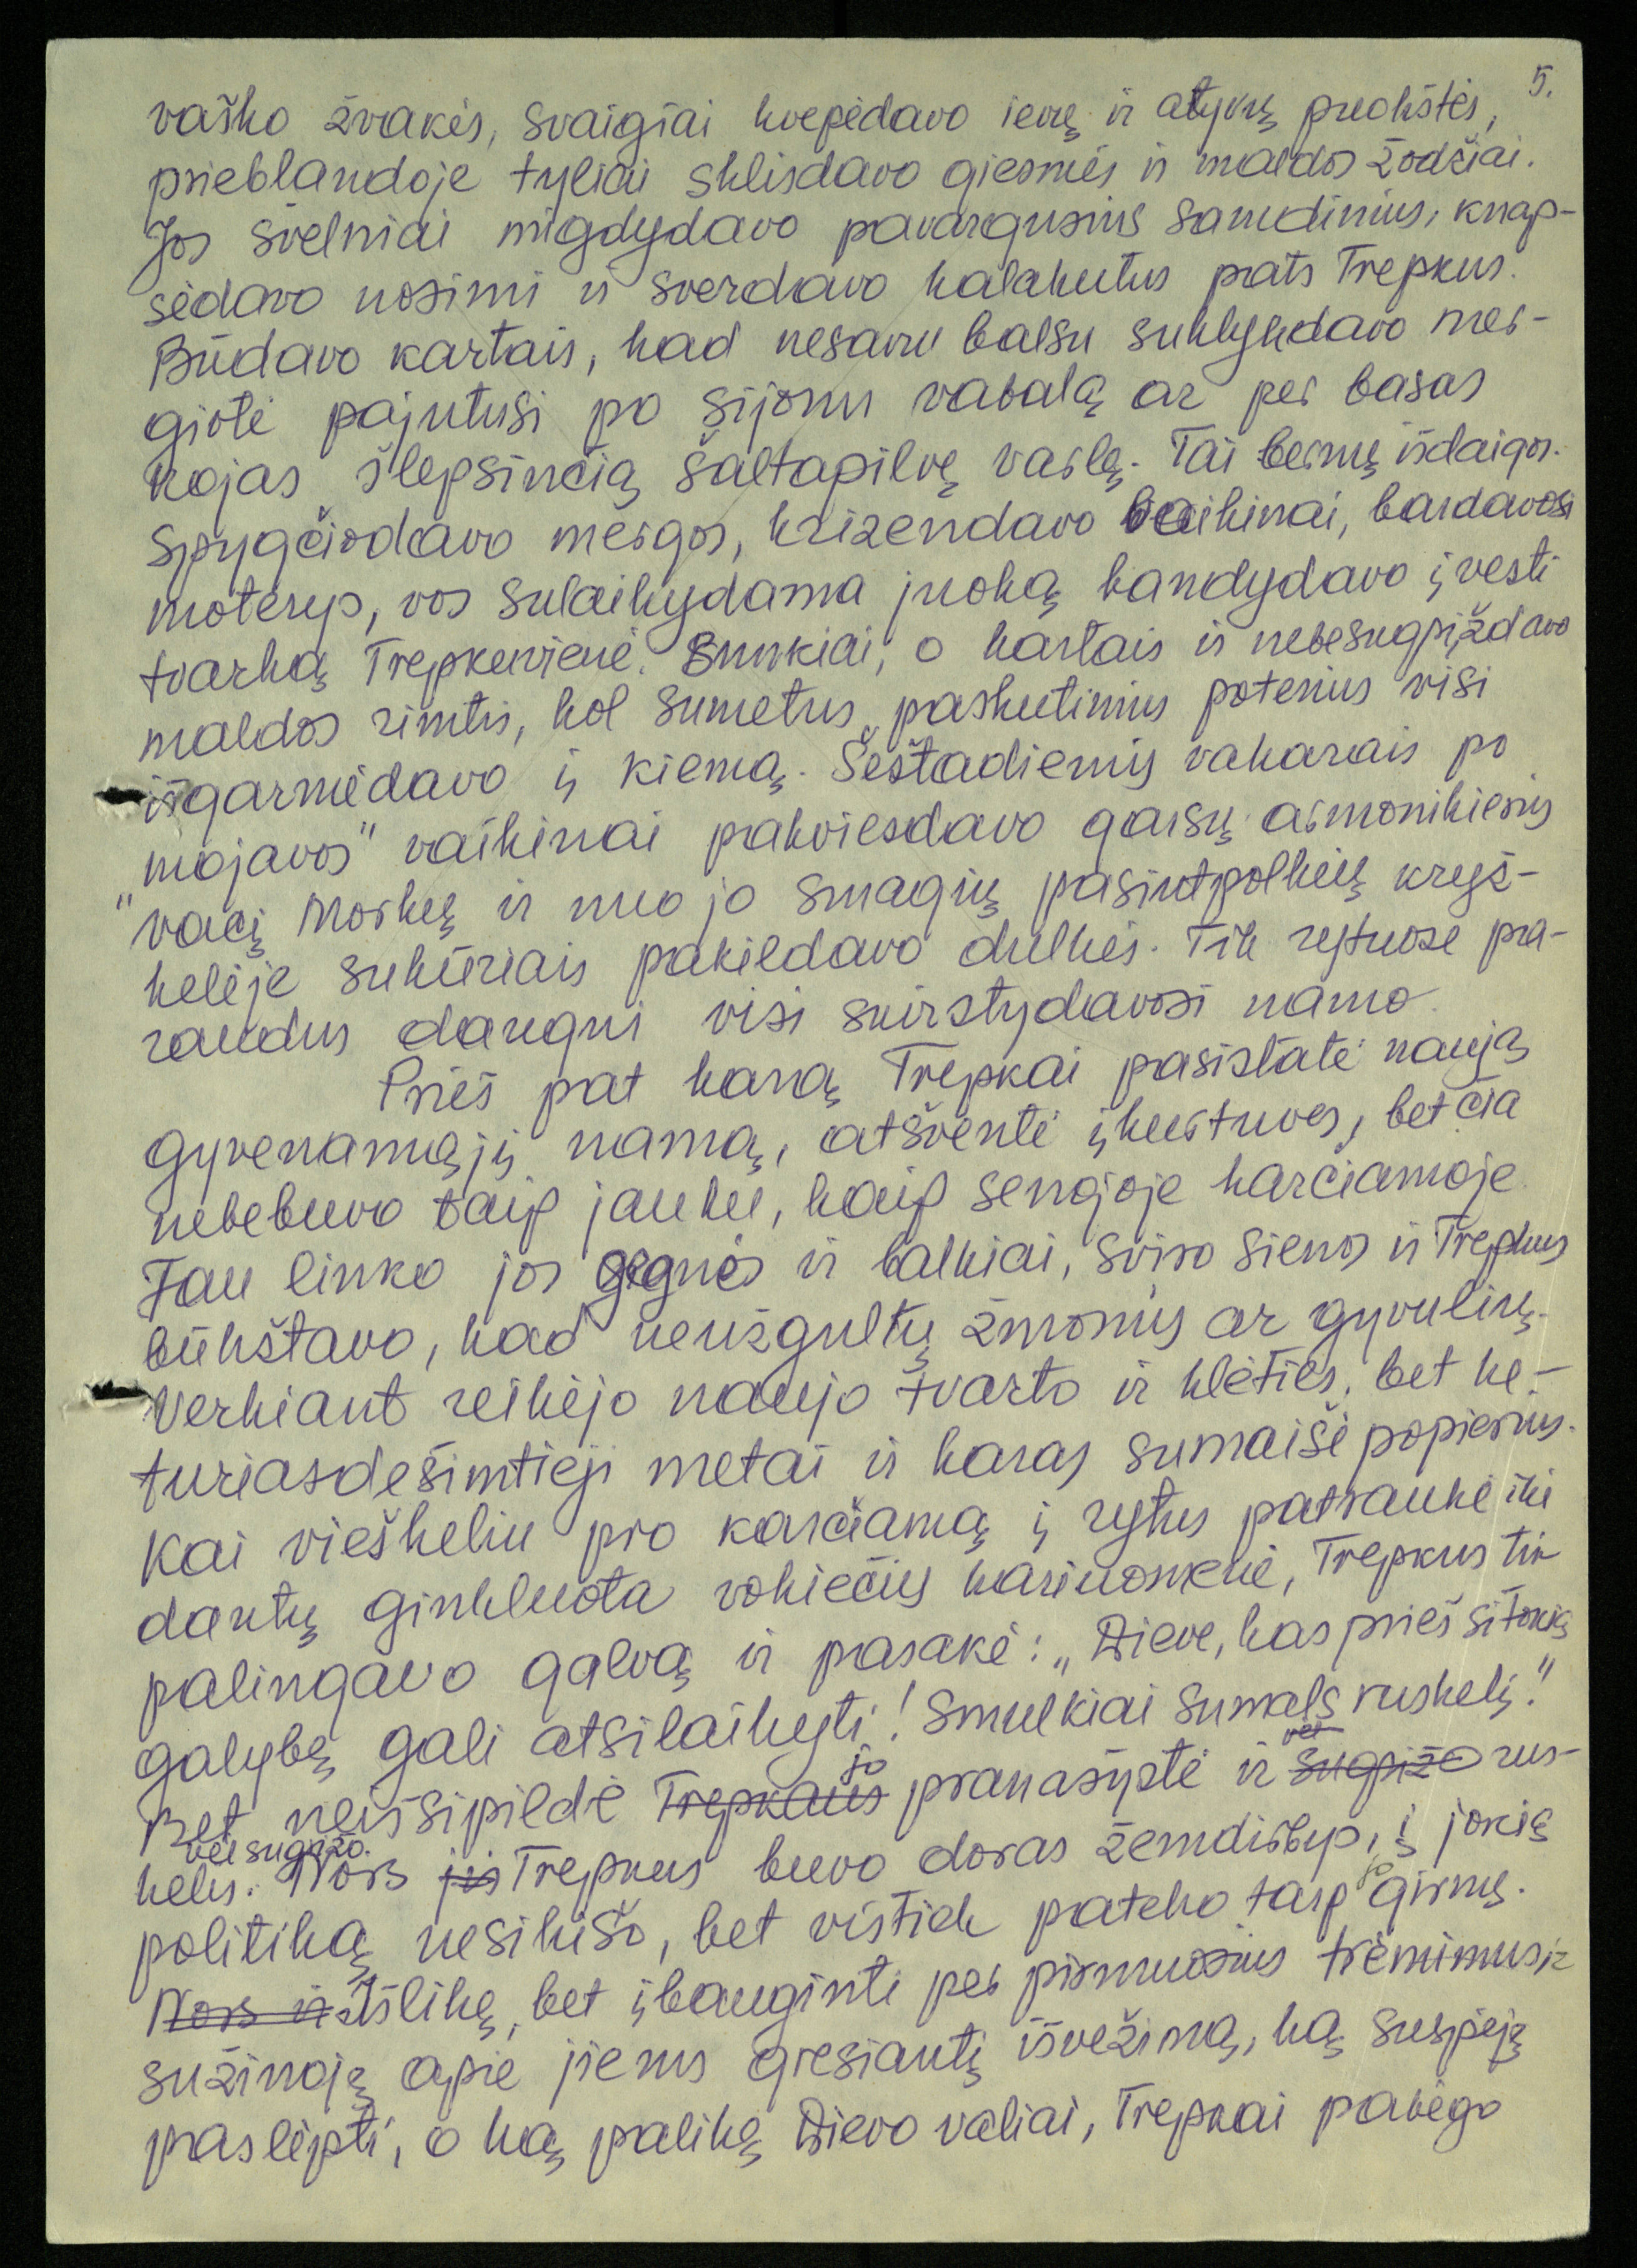 5.
vaško žvakės, svaigiai kvepėdavo ievų ir alyvų puokštės,
prieblandoje tyliai sklisdavo giesmės ir maldos žodžiai.
Jos švelniai migdydavo pavargusius samdinius, knap-
sėdavo nosimi ir sverdavo kalakutus pats Trepkus.
Būdavo kartais, kad nesavu balsu suklykdavo mer-
giotė pajutusi po sijonu vabalą ar per basas
kojas šlepsinčią šaltapilvę varlę. Tai bernų išdaigos.
Spygčiodavo mergos, krizendavo vaikinai, bardavosi
moterys, vos sulaikydama juoką bandydavo įvesti
tvarką Trepkuvienė. Sunkiai, o kartais ir nebesugrįždavo
maldos rimtis, kol sumetus paskutinius poterius visi
išgarmėdavo į kiemą. Šeštadienių vakarais po
"mojavos" vaikinai pakviesdavo garsų armonikierių
Vacį Morkų ir nuo jo smagių pasiutpolkių kryž-
kelėje sukūriais pakildavo dulkės. Tik rytuose pa-
raudus dangui visi suirstydavosi namo.
Prieš pat karą Trepkai pasistatė naują
gyvenamąjį namą, atšventė įkurtuves, bet čia
nebebuvo taip jauku, kaip senojoje karčiamoje.
Jau linko jos gegnės ir balkiai, sviro sienos ir Trepkus
būkštavo, kad neužgultų žmonių ar gyvulių.
Verkiant reikėjo naujo tvarto ir klėties, bet ke-
turiasdešimtieji metai ir karas sumaišė popierius.
Kai vieškeliu pro karčiamą į rytus patraukė iki
dantų ginkluota vokiečių kariuomenė, Trepkus tik
palingavo galvą ir pasakė: „Dieve, kas prieš šitokią
galybę gali atsilaikyti! Smulkiai sumals ruskelį!"
Bet neišsipildė Trepkaus jo pranašystė ir vėl sugrįžo rus-
kelis vėl sugrįžo. Nors jis Trepkus buvo doras žemdirbys, į jokią
politiką nesikišo, bet vistiek pateko tarp jo girnų.
Nors ir Išlikę, bet įbauginti per pirmuosius trėmimus ir
sužinoję apie jiems gresiantį išvežimą, ką suspėję
paslėpti, o ką palikę Dievo valiai, Trepkai pabėgo